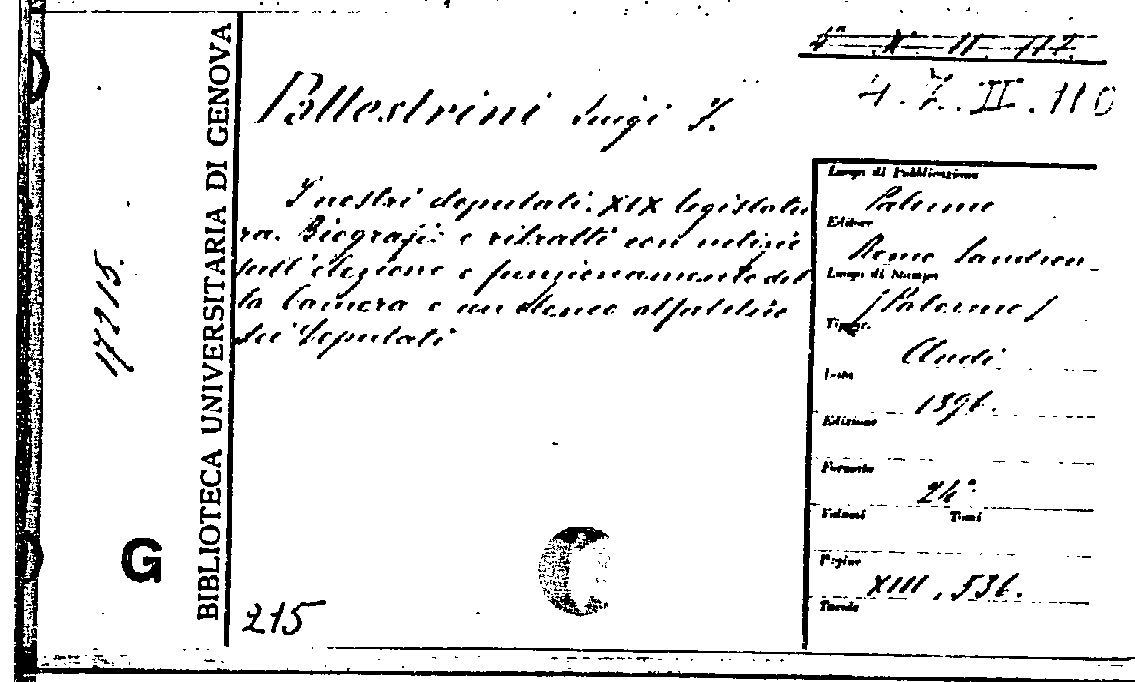 4ª X II 117.
4. Z. II. 110
Pallestrini Luigi F.
I nostri deputati. XIX legislatu
ra. Biografie e ritratti con notizie
sull'elezione e funzionamento del
la Camera e un elenco alfabetico
dei Deputati
Luogo di Pubblicazione
Palermo
Editore
Remo Sandron
Luogo di Stampa
[Palermo]
Tipogr.
Data
1896.
Edizione
Formato
24°
Volumi Tomi
Pagine
XIII, 536.
Tavole
17215.
BIBLIOTECA UNIVERSITARIA DI GENOVA
G
215